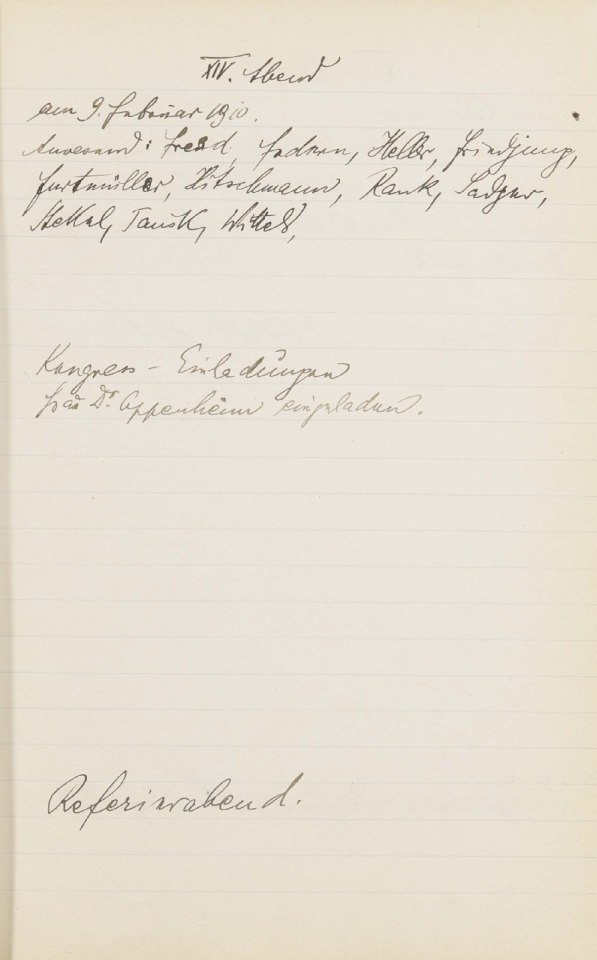 XIV. Abend
am 9. Februar 1910.
Anwesend: Freud, Federn, Heller, Friedjung,
Furtmüller, Hitschmann, Rank, Sadger,
Stekel, Tausk, Wittels,
Kongress – Einladungen
Dr. Oppenheim eingeladen.
Referierabend.